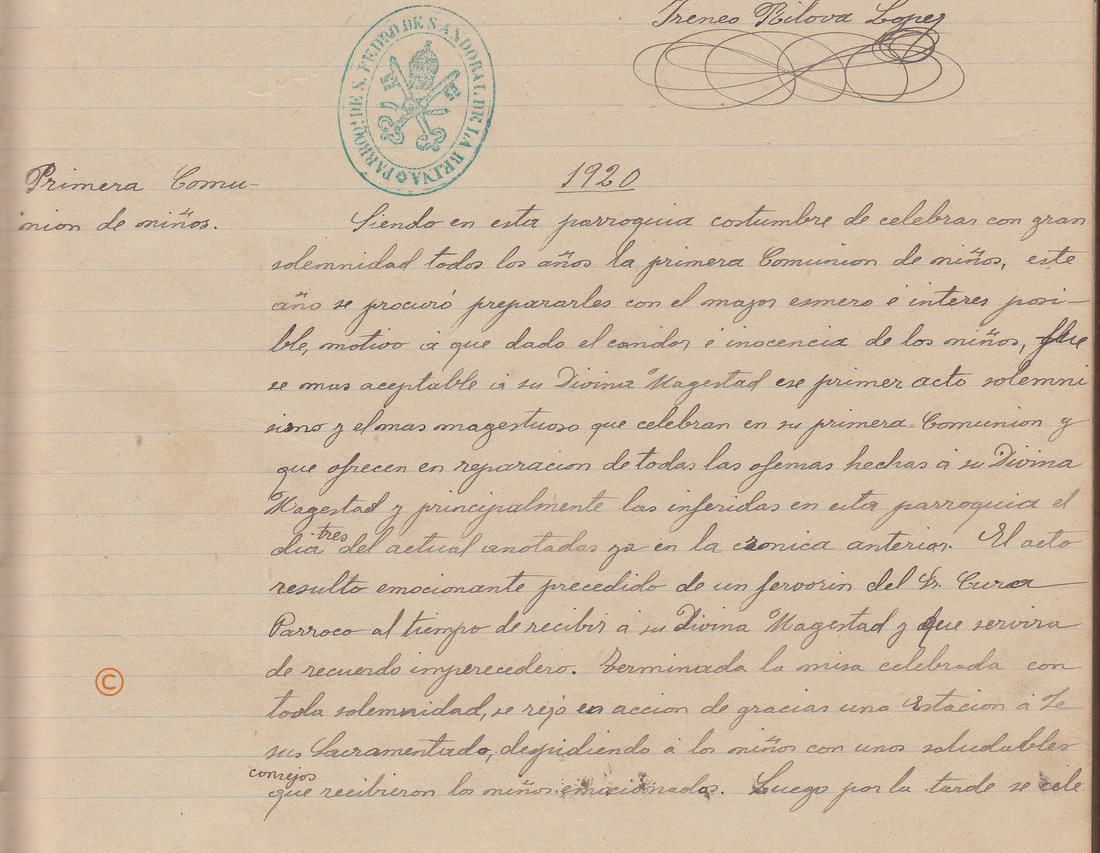 Ireneo Rilova Lopez
PARROQ. DE S. PEDRO DE SANDOBAL DE LA REINA
Primera Comu-
nion de niños.
1920
Siendo en esta parroquia costumbre de celebrar con gran
solemnidad todos los años la primera Comunion de niños, este
año se procuró prepararles con el mayor esmero é interes posi-
ble, motivo á que dado el candor é inocencia de los niños, fue
se mas aceptable a su Divina Magestad ese primer acto solemni
simo y el mas magestuoso que celebran en su primera Comunion y
que ofrecen en reparacion de todas las ofensas hechas á su Divina
Magestad y principalmente las inferidas en esta parroquia el
dia tres del actual anotadas ya en la cronica anterior. El acto
resulto emocionante precedido de un fervorin del Sr. Cura
Parroco al tiempo de recibir á su Divina Magestad y que servira
de recuerdo imperecedero. Terminada la misa celebrada con
toda solemnidad, se rejo en accion de gracias una Estacion á Je
sus Sacramentado, despidiendo á los niños con unos saludables
consejos
que recibieron los niños emocionados. Luego por la tarde se cele
©